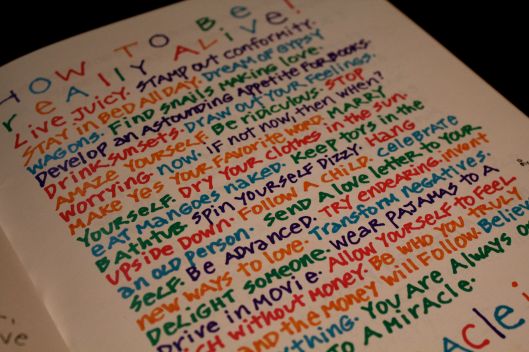 HOW TO BE
really ALive!
Live JUICY. STAMP OUT CONFORMITY.
STAY IN BED ALL DAY. DREAM OF GYPSY
WAGONS. FIND SNAILS MAKING LOVE.
Develop an ASTOUNDING APPETITE FOR BOOKS.
DRINK SUNSETS. DRAW OUT YOUR FEELINGS.
AMAZE YOURSELF. BE RIDICULOUS. STOP
WORRYING. NOW. IF NOT NOW, THEN WHEN?
MAKE YES YOUR FAVORITE WORD. MARRY
YOURSELF. DRY YOUR CLOTHES IN THE SUN.
EAT MANGOES NAKED. KEEP TOYS IN THE
BATHTUB. SPIN YOURSELF DIZZY. HANG
UPSIDE DOWN. FOLLOW A CHILD. CELEBRATE
AN OLD PERSON. SEND A LOVE LETTER TO YOUR
SELF. BE ADVANCED. TRY ENDEARING. INVENT
NEW WAYS TO LOVE. TRANSFORM NEGATIVES.
DELIGHT SOMEONE. WEAR PAJAMAS TO A
DRIVE IN MOVIE. ALLOW YOURSELF TO FEEL
RICH WITHOUT MONEY. BE WHO YOU TRULY
AND THE MONEY WILL FOLLOW. BELIEVE
YOU ARE ALWAYS
TO A MIRACLE.